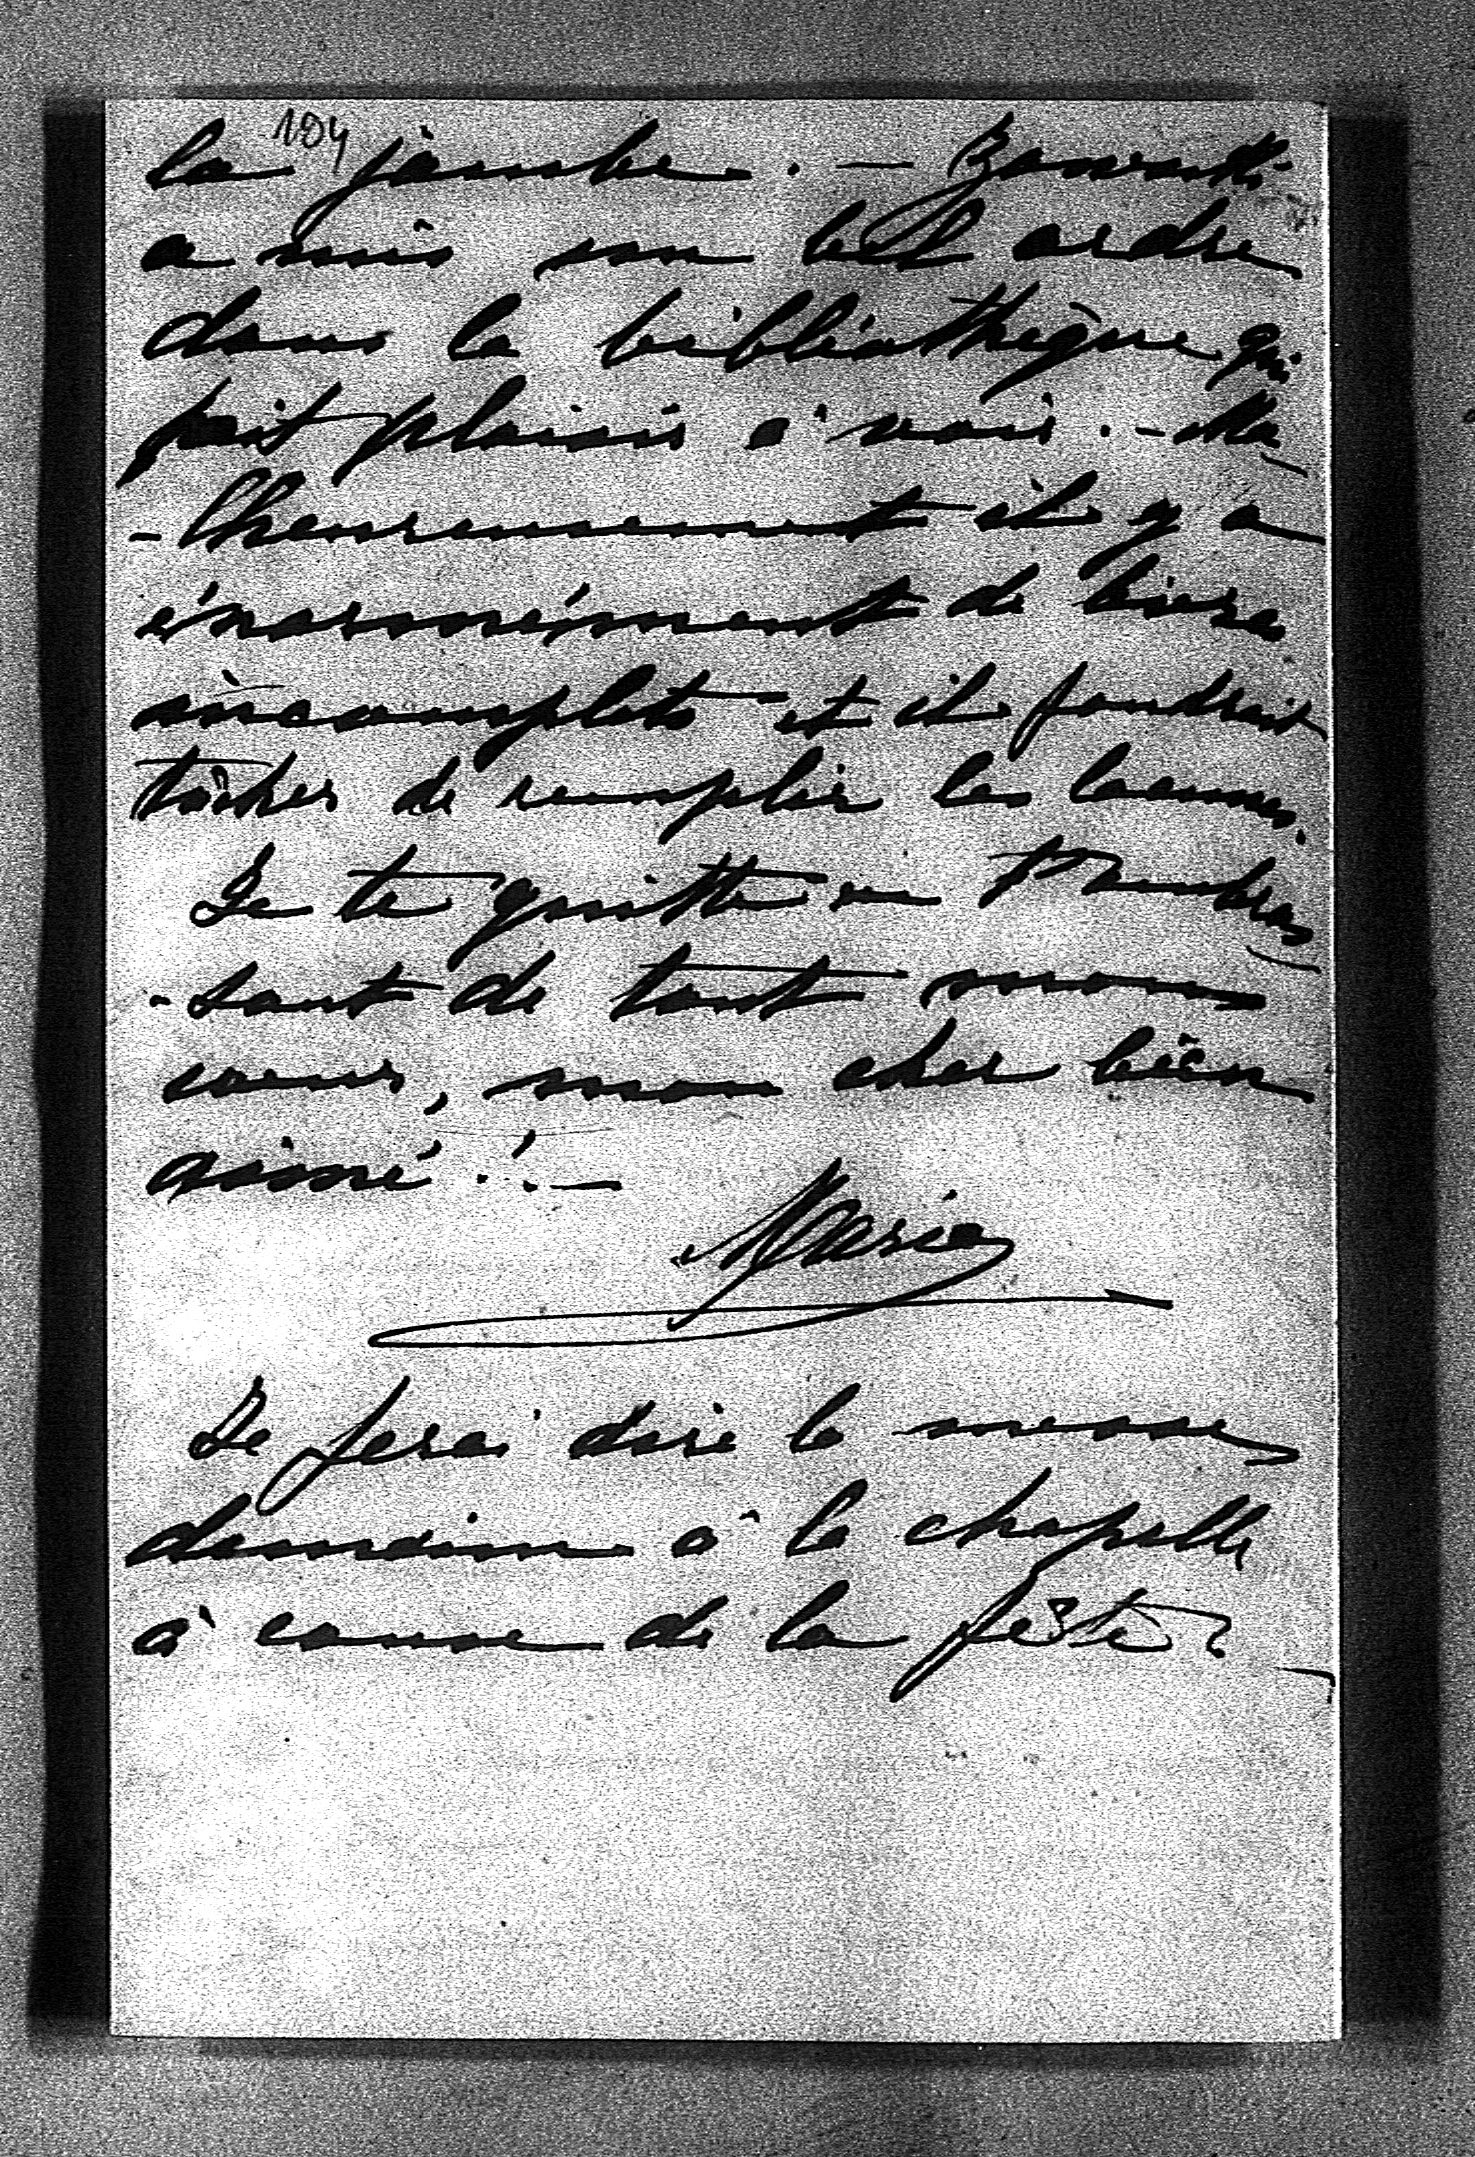 104
la jambe. —
a mis un bel ordre
dans la bibliothèque qui
fait plaisir à voir. - Ma-
-lheureusement il y a
énormément de livres
incomplets et il faudrait
tâcher de remplir les lacunes.
Je te quitte en t'embras-
-sant de tout mon
coeur, mon cher bien
aimé! —
Maria
Je ferai dire la messe
demain à la chapelle
à cause de la fête.